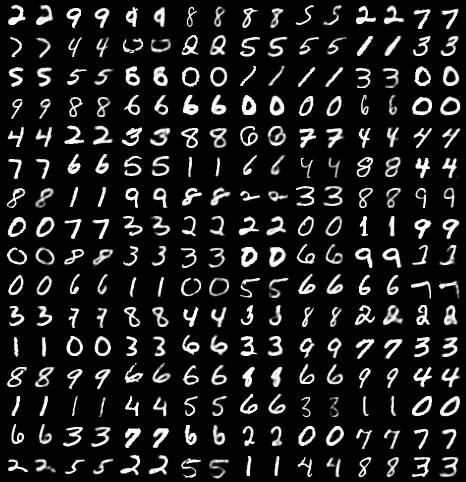 2 2 9 9 4 4 8 8 8 8 5 5 2 2 7 7
7 7 4 4 0 0 2 2 5 5 5 5 1 1 3 3
5 5 5 5 6 6 0 0 1 1 1 1 3 3 0 0
9 9 8 8 6 6 6 6 0 0 0 0 6 6 0 0
4 4 2 2 3 3 8 8 6 6 7 7 4 4 4 4
7 7 6 6 5 5 1 1 6 6 4 4 8 8 4 4
8 8 1 1 9 9 8 8 2 2 3 3 8 8 9 9
0 0 7 7 3 3 2 2 2 2 0 0 1 1 9 9
0 0 8 8 3 3 3 3 0 0 6 6 9 9 1 1
0 0 6 6 1 1 0 0 5 5 6 6 6 6 7 7
3 3 7 7 8 8 4 4 3 3 8 8 2 2 2 2
1 1 0 0 3 3 6 6 3 3 9 9 7 7 3 3
8 8 9 9 6 6 6 6 8 8 6 6 9 9 4 4
1 1 1 1 4 4 5 5 6 6 3 3 1 1 0 0
6 6 3 3 7 7 6 6 2 2 0 0 7 7 7 7
2 2 5 5 2 2 5 5 1 1 4 4 8 8 3 3